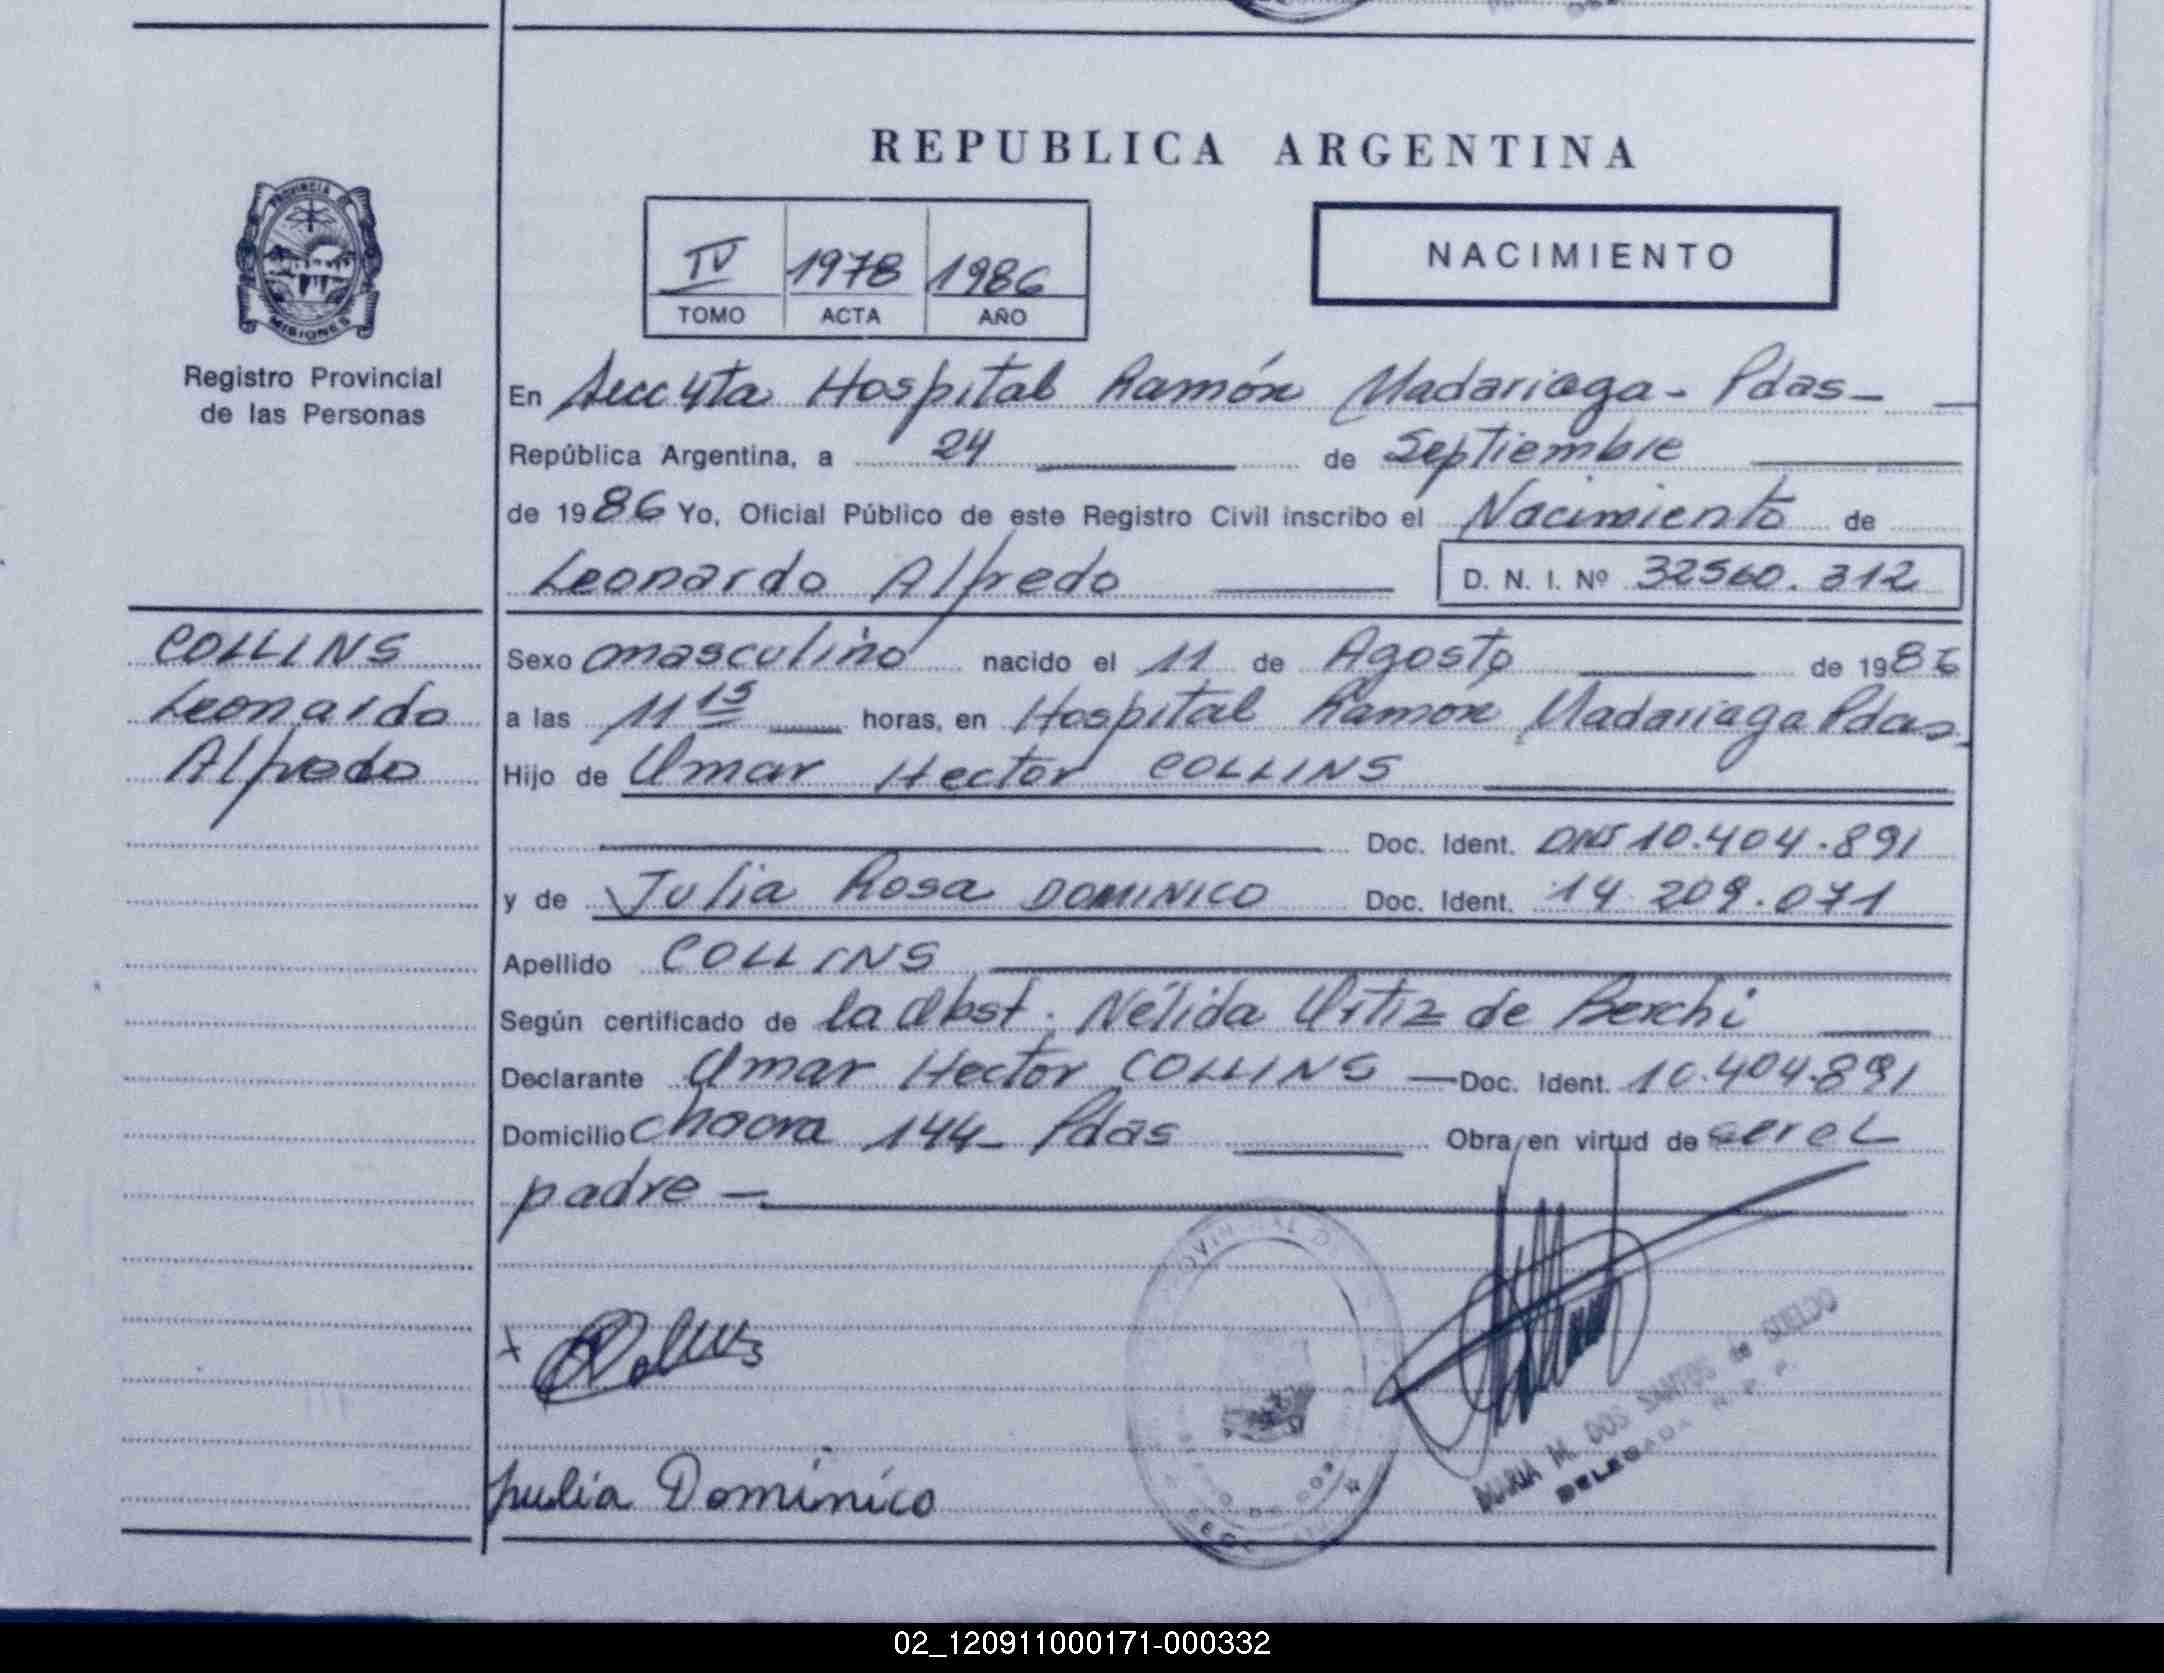 REPUBLICA ARGENTINA
PROVINCIA DE
MISIONES
Registro Provincial
de las Personas
IV 1978 1986
TOMO ACTA AÑO
NACIMIENTO
En Secc 4ta Hospital Ramón Madariaga - Pdas -
República Argentina, a 24 de Septiembre
de 1986 Yo, Oficial Público de este Registro Civil inscribo el Nacimiento de
Leonardo Alfredo D. N. I. Nº 32560.312
COLLINS
Leonardo
Alfredo
Sexo masculino nacido el 11 de Agosto de 1986
a las 11 15 horas, en Hospital Ramon Madariaga Pdas -
Hijo de Omar Hector COLLINS
Doc. Ident. DNI 10.404.891
y de Julia Rosa DOMINICO Doc. Ident. 14 209.071
Apellido COLLINS
Según certificado de la Obst. Nélida Ortiz de Berchi
Declarante Omar Hector COLLINS — Doc. Ident. 10.404.891
Domicilio chacra 144 - Pdas Obra en virtud de ser el
padre —
x
Julia Dominico
MARIA M. DOS SANTOS de SUELDO
DELEGADA R. P. P.
02_120911000171-000332